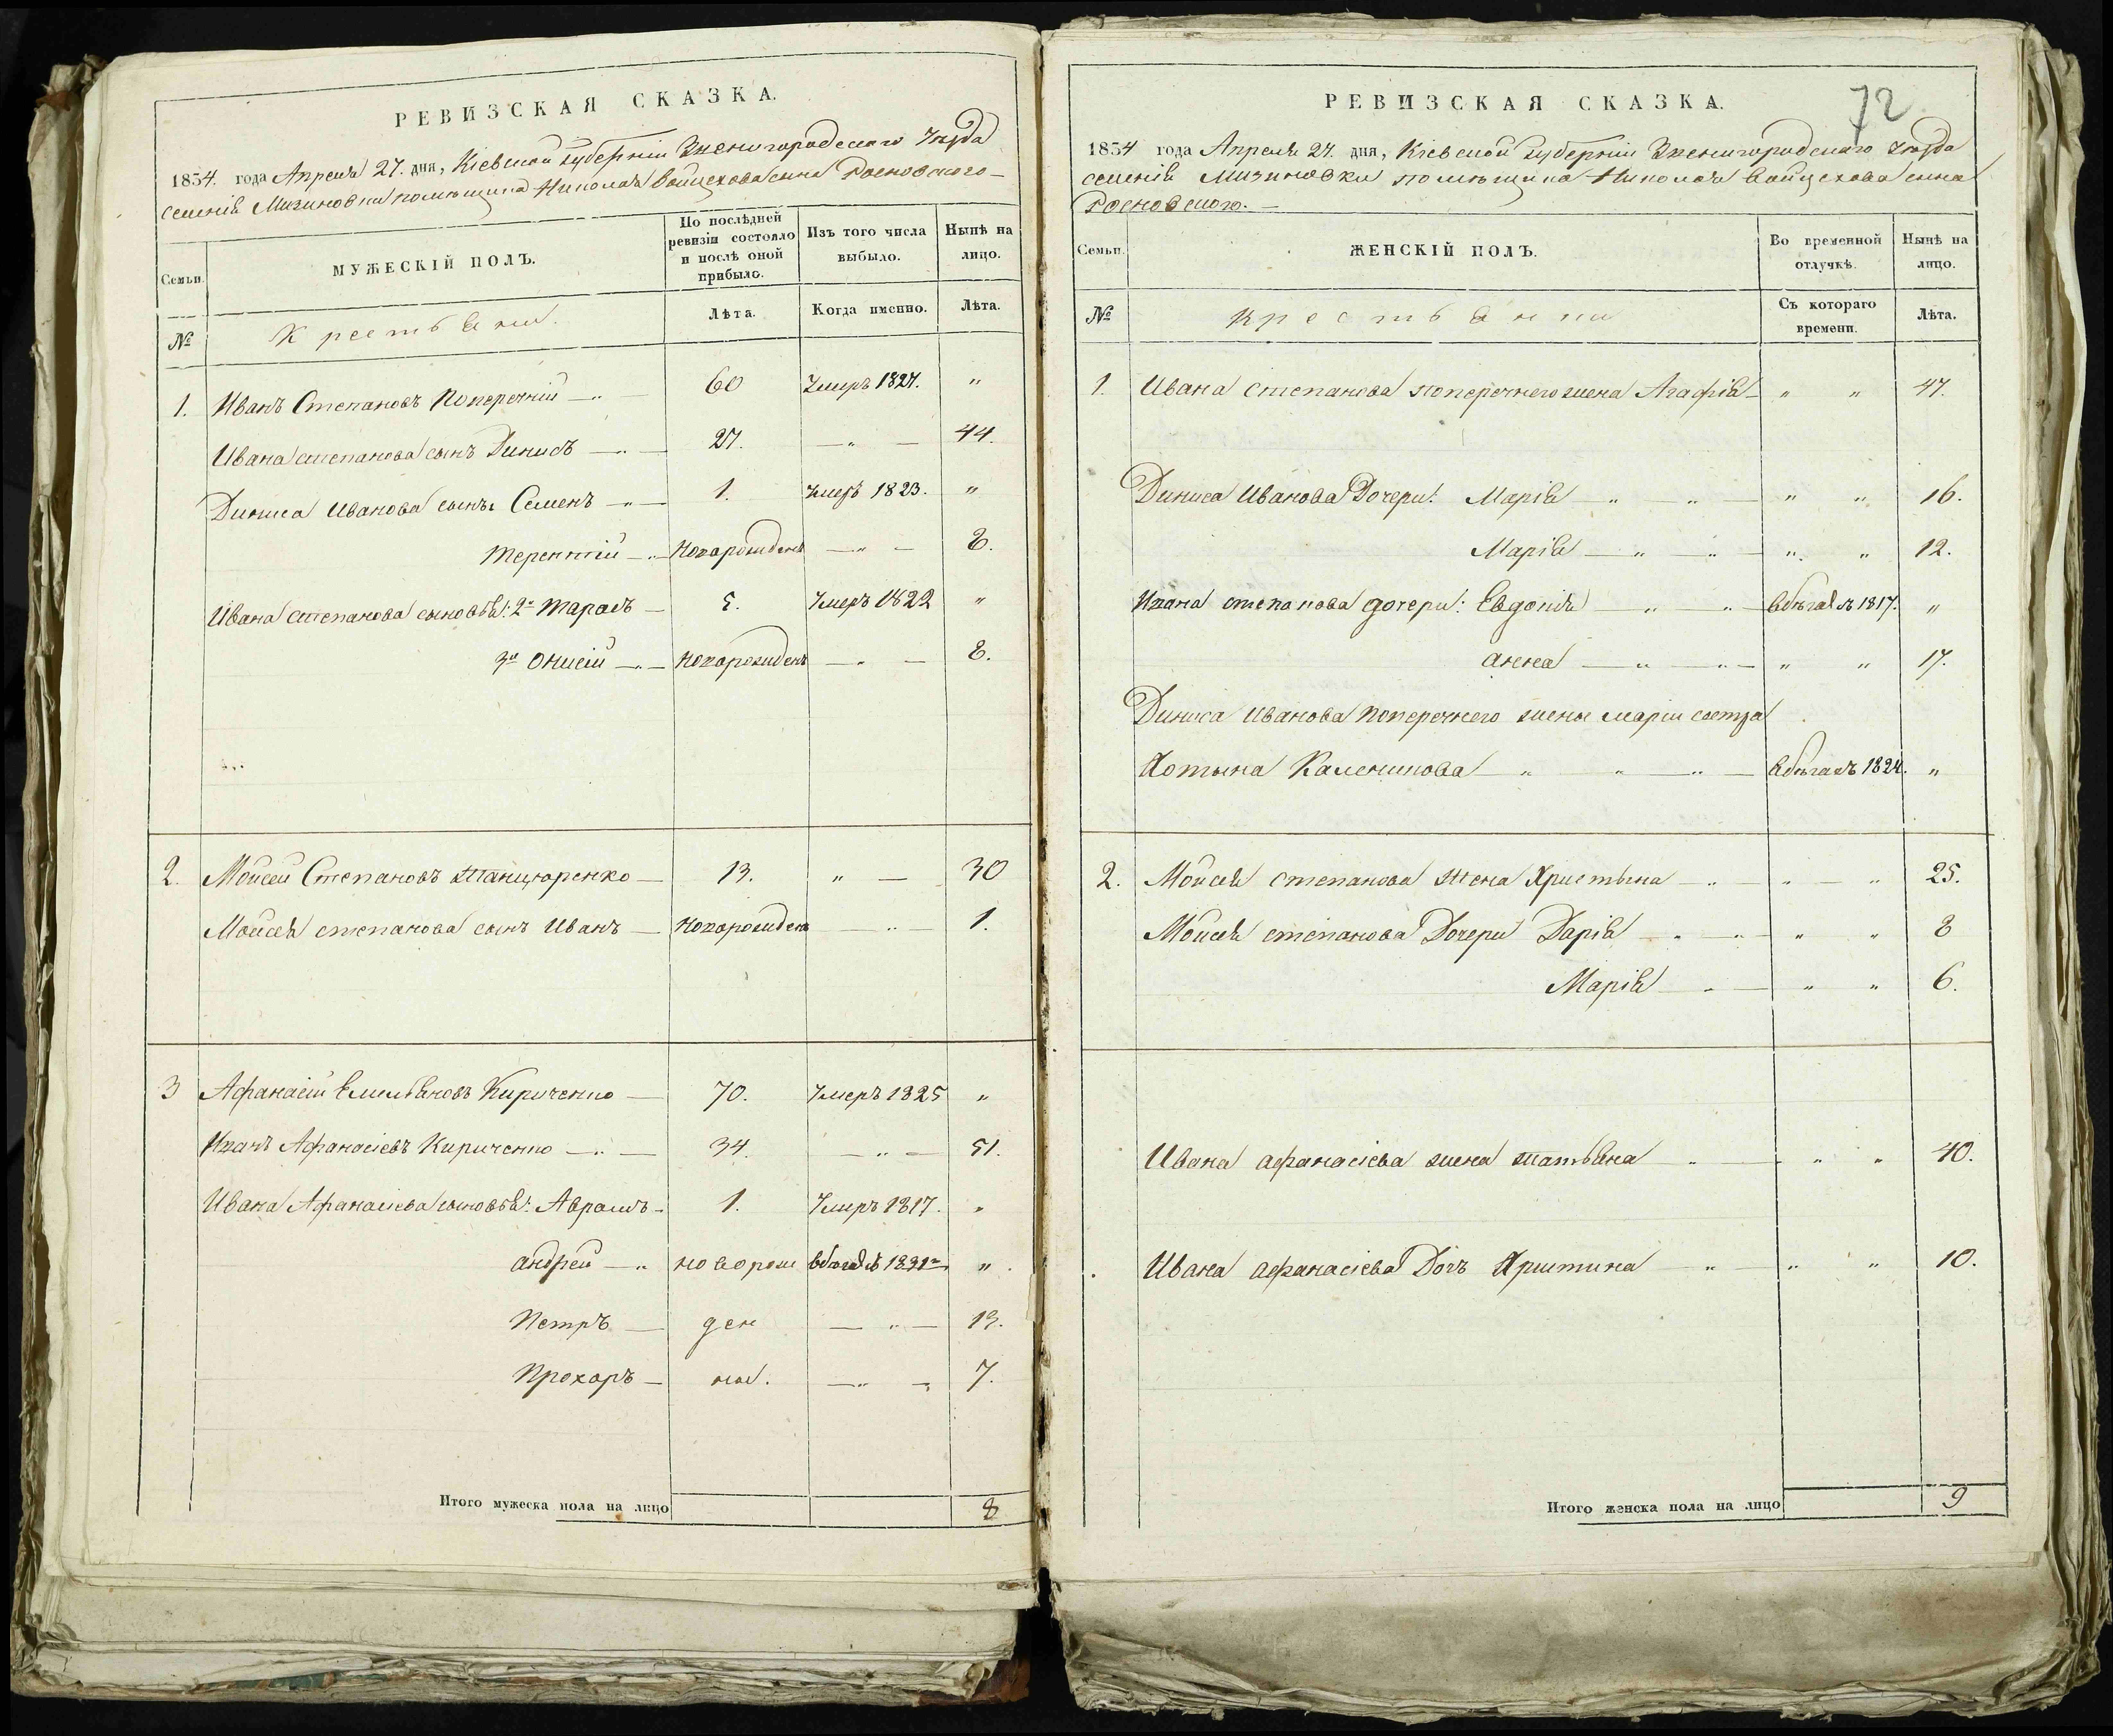 РЕВИЗСКАЯ СКАЗКА.
1834. года Апреля 27. дня, Кіевской губерніи Звенигородского Уезда
селенія Мизиновки помѣщика Николая Войцехова сына Росновского
Семьи.
МУЖЕСКІЙ ПОЛЪ.
По послѣдней ревизіи состояло и послѣ оной прибыло.
Изъ того числа выбыло.
Нынѣ на лицо.
№
Крестьяни.
Лѣта.
Когда именно.
Лѣта.
1. Иванъ Степановъ Поперечній — " — 60 Умеръ 1827. "
Ивана степанова сынъ Динисъ — " — 27. — " — 44.
Диниса Иванова сынъ Семенъ — " — 1. Умеръ 1823. "
Терентій — " — новорожденъ — " — 8.
Ивана степанова сыновья: 2й Тарасъ — 5. Умеръ 1822 "
3й Онисій — " — новорожденъ — " — 8.
2. Мойсей Степановъ Танцюренко — 13. " — 30
Мойсея степанова сынъ Иванъ — новорожденъ — " — 1.
3 Афанасій Емельяновъ Кириченко — 70. Умеръ 1825 "
Иванъ Афанасіевъ Кириченко — " — 34. — " — 51.
Ивана Афанасіева сыновья: Аврамъ — 1. Умеръ 1817. "
андрей — " новорож вбѣгахъ 1831го "
Петръ — ден — " — 13.
Прохаръ — ны. — " — 7.
Итого мужеска пола на лицо 8
72
РЕВИЗСКАЯ СКАЗКА.
1834 года Апреля 27. дня, Кіевской губерніи Звенигородского Уезда
селенія Мизиновки помѣщика Николая Войцехова сына
Росновского. —
Семьи.
ЖЕНСКІЙ ПОЛЪ.
Во временной отлучкѣ.
Нынѣ на лицо.
№
Крестьянки
Съ котораго времени.
Лѣта.
1. Ивана степанова поперечнего жена Агафія — " " 47.
Диниса Иванова Дочери: Марія — " — " — " " 16.
Марія — " — " — " " 12.
Ивана степанова дочери: Евдокія — " — " — вбѣгахъ 1817. "
анна — " — " — " " 17.
Диниса Иванова поперечнего жены маріи сестра
Хотына Каленикова — " " " — вбѣгахъ 1824. "
2. Мойсея степанова жена Христына — " — " — " 25.
Мойсея степанова Дочери Дарія — " — " — " " 8
Марія — " — " " 6.
Ивана афанасіева жена татьяна " — " " 40.
Ивана афанасіева Дочъ Христина — " — " " 10.
Итого женска пола на лицо 9